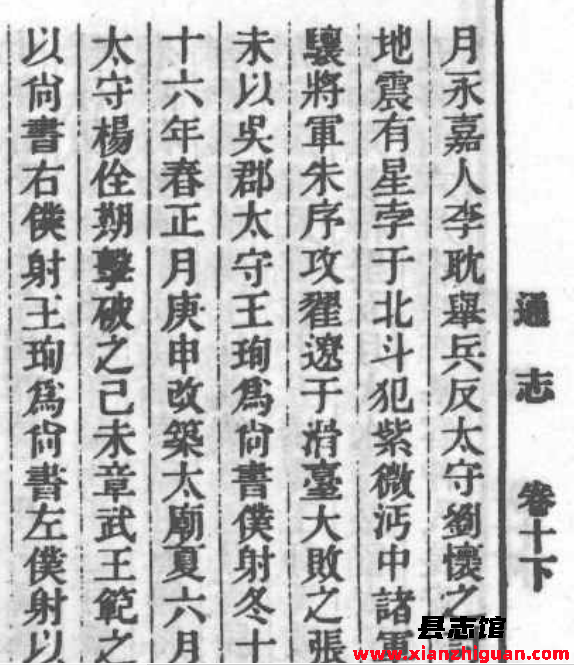 通志 卷十下
月永嘉人李耽舉兵反太守劉懷之
地震有星孛于北斗犯紫微沔中諸軍
驤將軍朱序攻翟遼于滑臺大敗之張
未以吳郡太守王珣爲尚書僕射冬十
十六年春正月庚申改築太廟夏六月
太守楊佺期擊破之己未章武王範之
以尚書右僕射王珣爲尚書左僕射以
县志馆
www.xianzhiguan.com